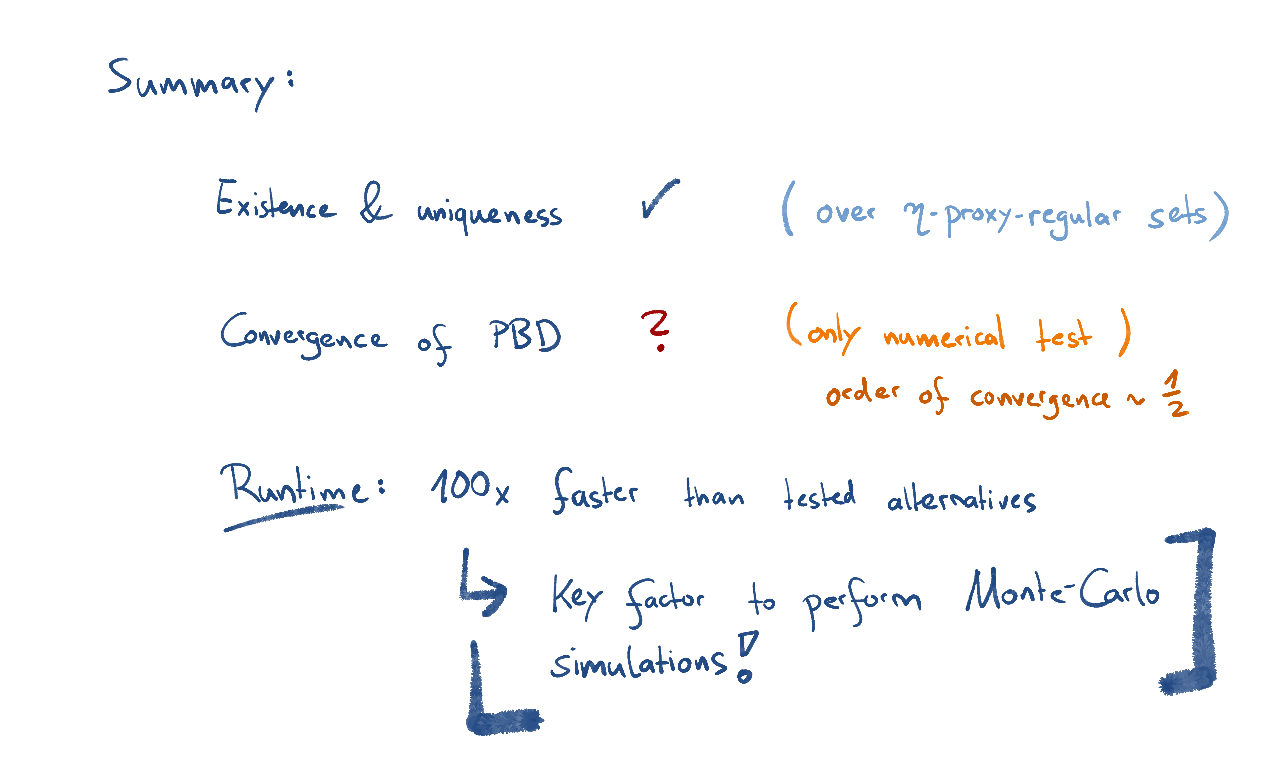 Summary:
Existence & uniqueness ✓ (over η-proxy-regular sets)
Convergence of PBD ? (only numerical test)
order of convergence ~ 1/2
Runtime: 100x faster than tested alternatives
↳ Key factor to perform Monte-Carlo
simulations!